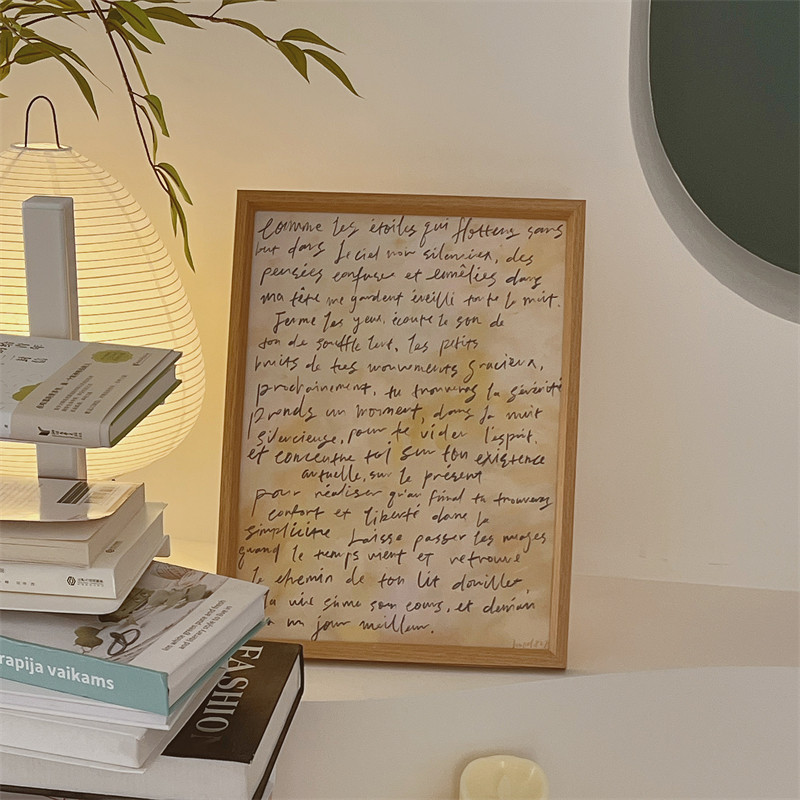 Comme les étoiles qui flottent sans
but dans le ciel noir silencieux, des
pensées confuses et emmêlées dans
ma tête me gardent éveillé toute la nuit.
Ferme les yeux, écoute le son de
ton de souffle lent, les petits
bruits de tes mouvements gracieux,
prochainement, tu trouveras la sérénité
prends un moment, dans la nuit
silencieuse, pour te vider l'esprit.
et concentre toi sur ton existence
actuelle, sur le présent
pour réaliser qu'au final tu trouveras
confort et liberté dans la
simplicité Laisse passer les nuages
quand le temps vient et retrouve
le chemin de ton lit douillet
la vie suivre son cours, et demain
un jour meilleur.
rapija vaikams
FASHION